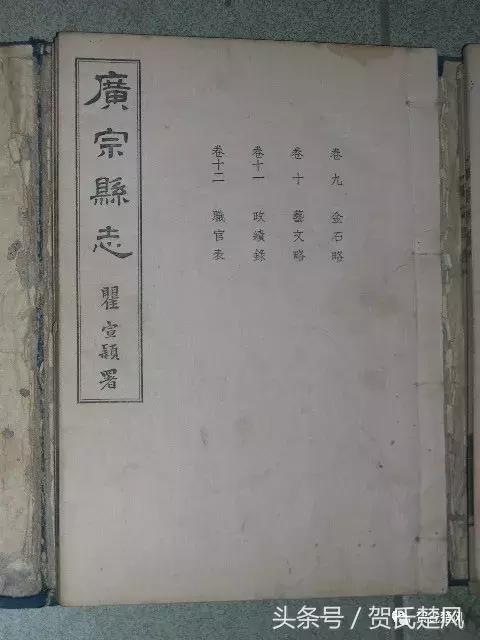 廣宗縣志
瞿宣穎署
卷九 金石略
卷十 藝文略
卷十一 政績錄
卷十二 職官表
头条号/贺氏楚风